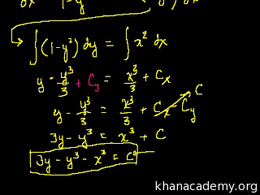 dx 1-y² y² dx
∫(1-y²) dy = ∫ x² dx
y - y³/3 + Cy = x³/3 + Cx
y - y³/3 = x³/3 + Cx - Cy C
3y - y³ = x³ + C
3y - y³ - x³ = C
khanacademy.org